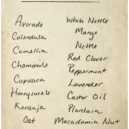 Avocado
Calendula
Camellia
Chamomile
Cupuacu
Honeysuckle
Karanja
Oat
White Nettle
Mango
Nettle
Red Clover
Peppermint
Lavender
Castor Oil
Plantain
Macadamia Nut